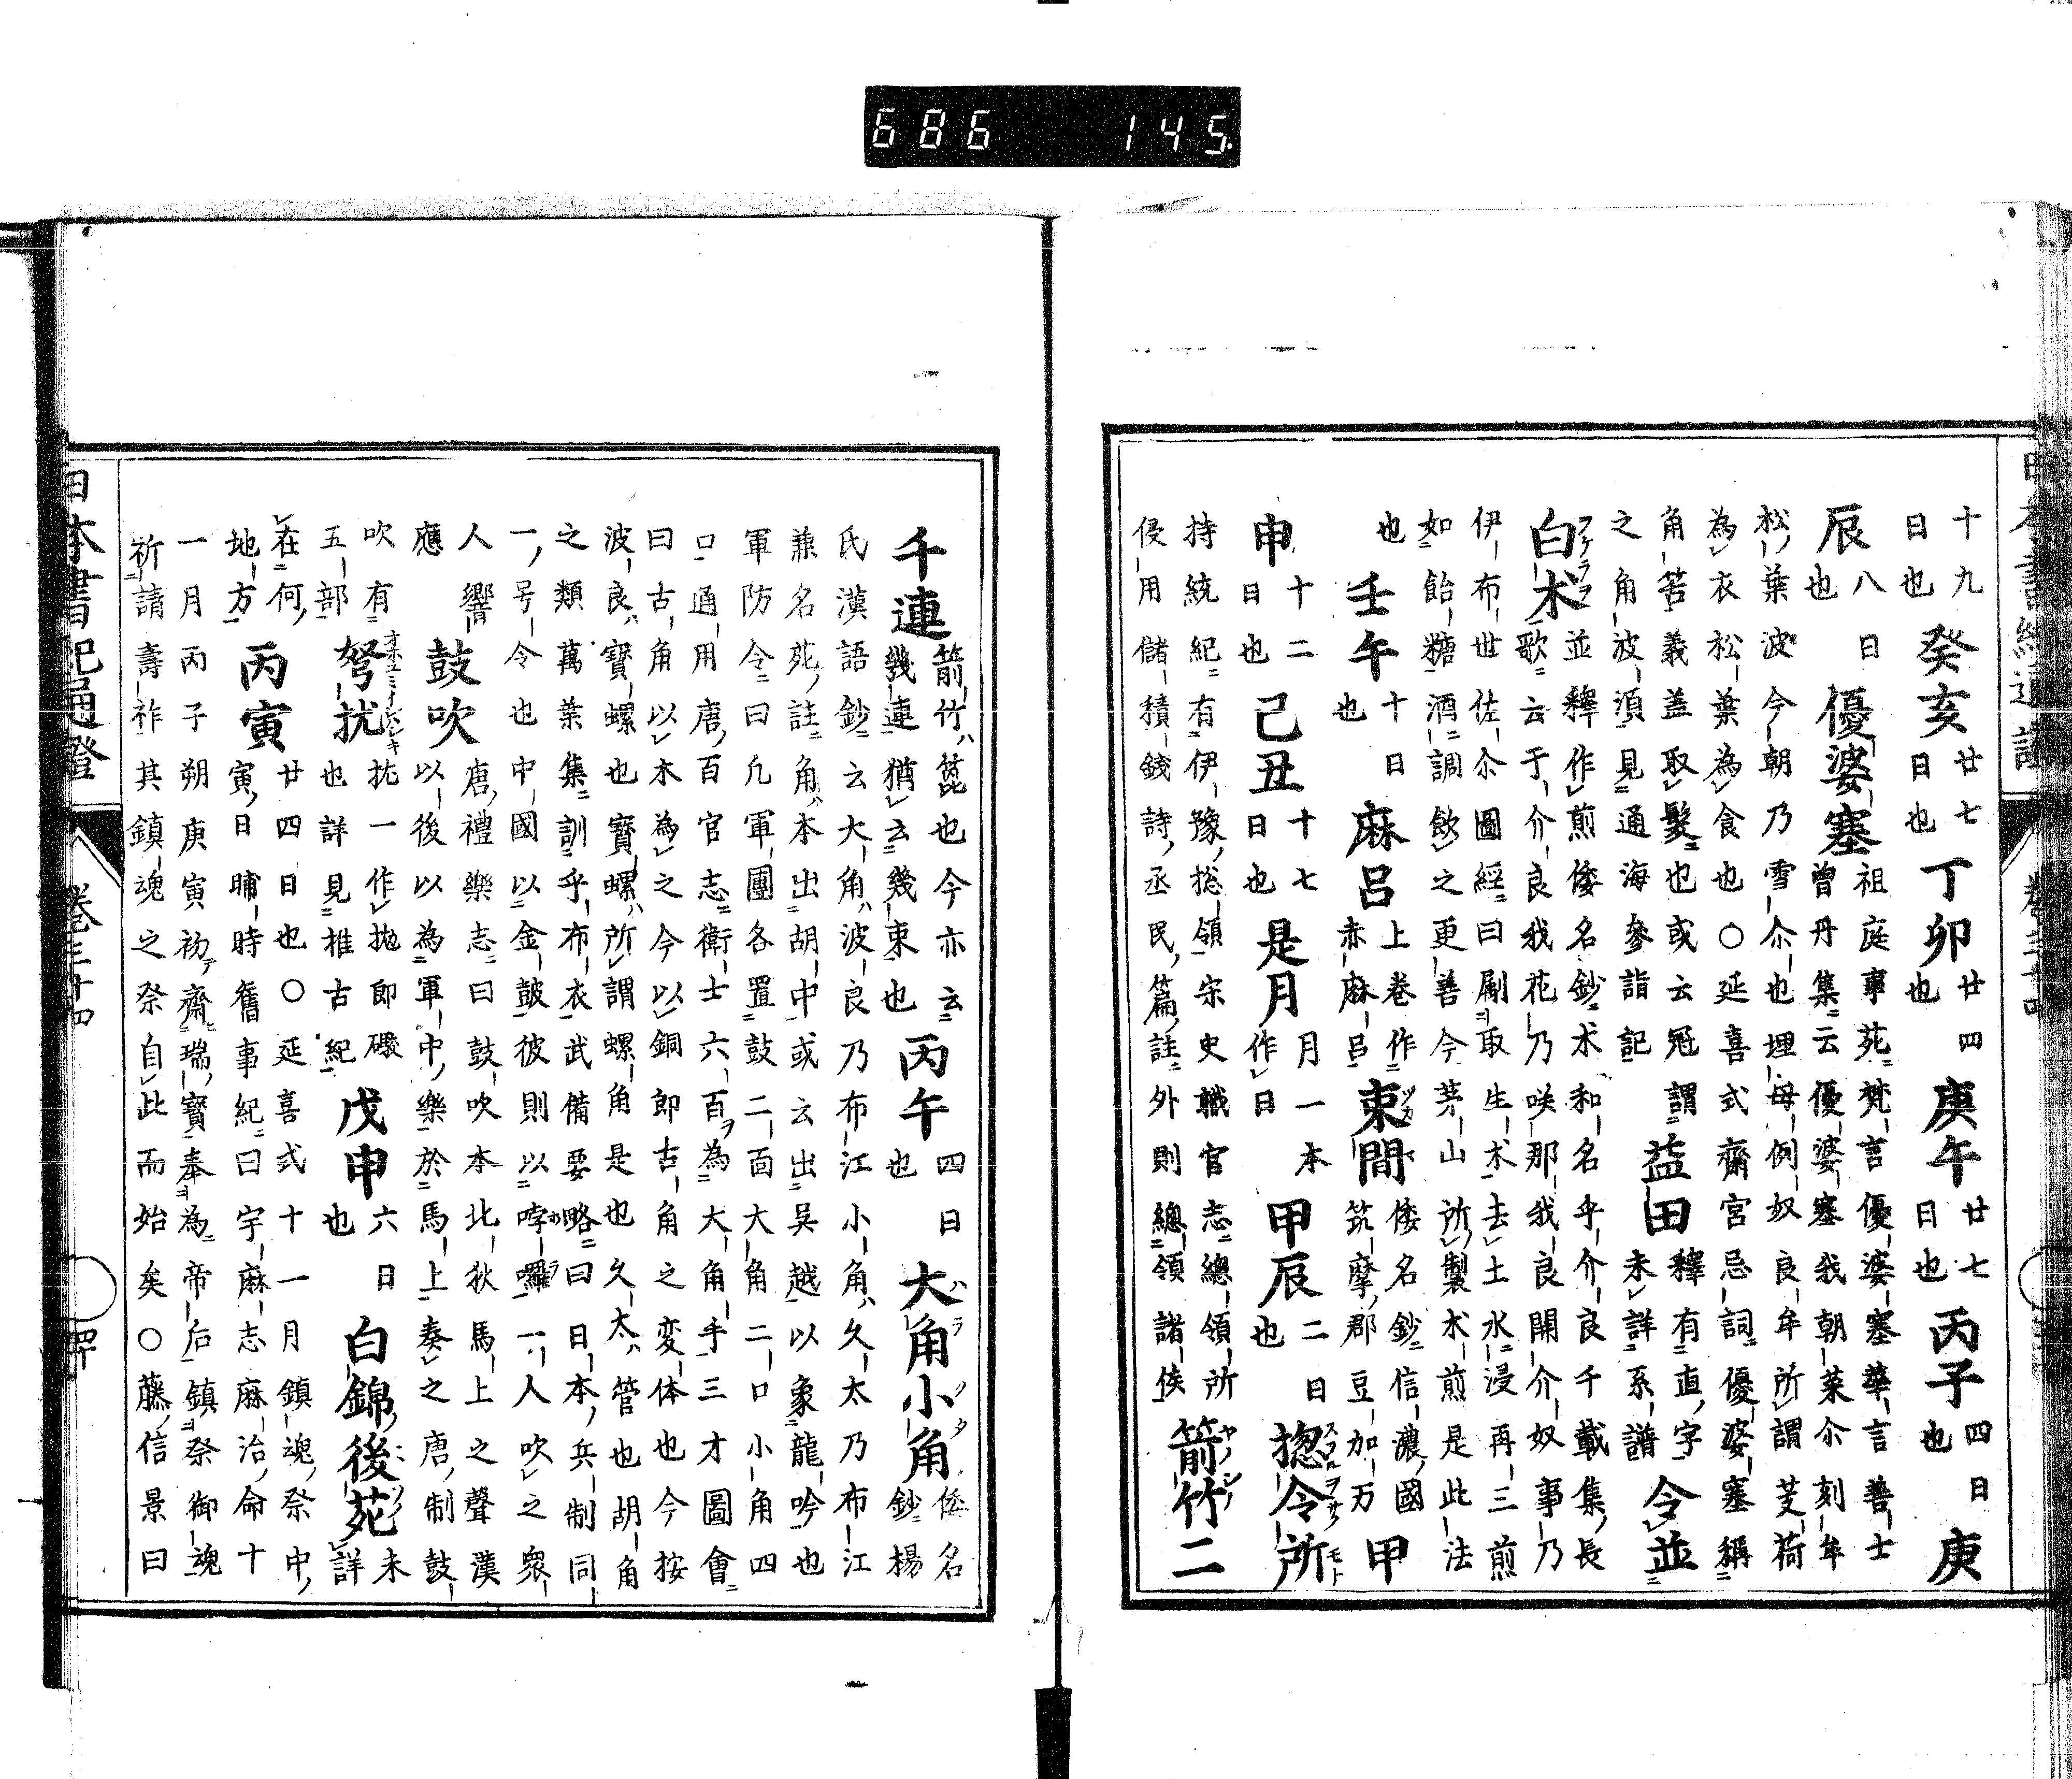 686 145
十九日也 癸亥 廿七日也 丁卯 廿四也 庚午 廿七日也 丙子 四日也 庚
辰 八日也 優婆塞 祖庭事苑梵言優婆塞華言善士
曾丹集云優婆塞我朝菜尒刻牟
松葉波今朝乃雪尒也埋母例奴良牟所謂芰荷
為衣松葉為食也○延喜式齋宮忌詞優婆塞稱
角筈義盖取髮也或云冠謂
之角波湏見通海參詣記 益田 釋有直字
未詳系譜 令並
白朮 アケラヲ 並釋作煎倭名鈔朮和名乎介良千載集長
歌云于介良我花乃咲那我良開介奴事乃
伊布世佐尒圖經曰劚取生朮去土水浸再三煎
如飴糖酒調飲之更善今茅山所製朮煎是此法
也 壬午 十日也 麻呂 上卷作赤麻呂 束間 ツカマ 倭名鈔信濃國筑摩郡豆加万 甲
申 十二日也 己丑 十七日也 是月 月一本作日 甲辰 二日也 揔令所 スフルヲサノモト
持統紀有伊豫揔領宋史職官志總領所
侵用儲積錢詩丞民篇註外則總領諸侯 箭竹二 ヤノシノ
千連 箭竹ハ箆也今亦云
幾連猶云幾束也 丙午 四日也 大角小角 ハラ クタ 倭名鈔楊
氏漢語鈔云大角ハ波良乃布江小角ハ久太乃布江
兼名苑註角ハ本出胡中或云出吳越以象龍吟也
軍防令曰凢軍團各置鼓二面大角二口小角四
口通用唐百官志衛士六百ヲ為大角手三才圖會
曰古角以木為之今以銅即古角之変体也今按
波良寳螺也寳螺ハ所謂螺角是也久太ハ管也胡角
之類萬葉集訓乎布衣武備要略曰日本兵制同
一号令也中國以金皷彼則以哱囉一人吹之衆
人響
應 鼓吹 唐禮樂志曰鼓吹本北狄馬上之聲漢
以後以為軍中樂於馬上奏之唐制鼓
吹有
五部 弩抗 オホユミイシハシキ 抗一作抛即礮
也詳見推古紀 戊申 六日也 白錦後苑 ミソノ 未詳
在何
地方 丙寅 廿四日也○延喜式十一月鎮魂祭中
寅日晡時舊事紀曰宇麻志麻治命十
一月丙子朔庚寅初テ齋瑞寳奉ヲ為帝后鎮祭御魂
祈請壽祚其鎮魂之祭自此而始矣○藤信景曰
日本書紀通證 卷三十四